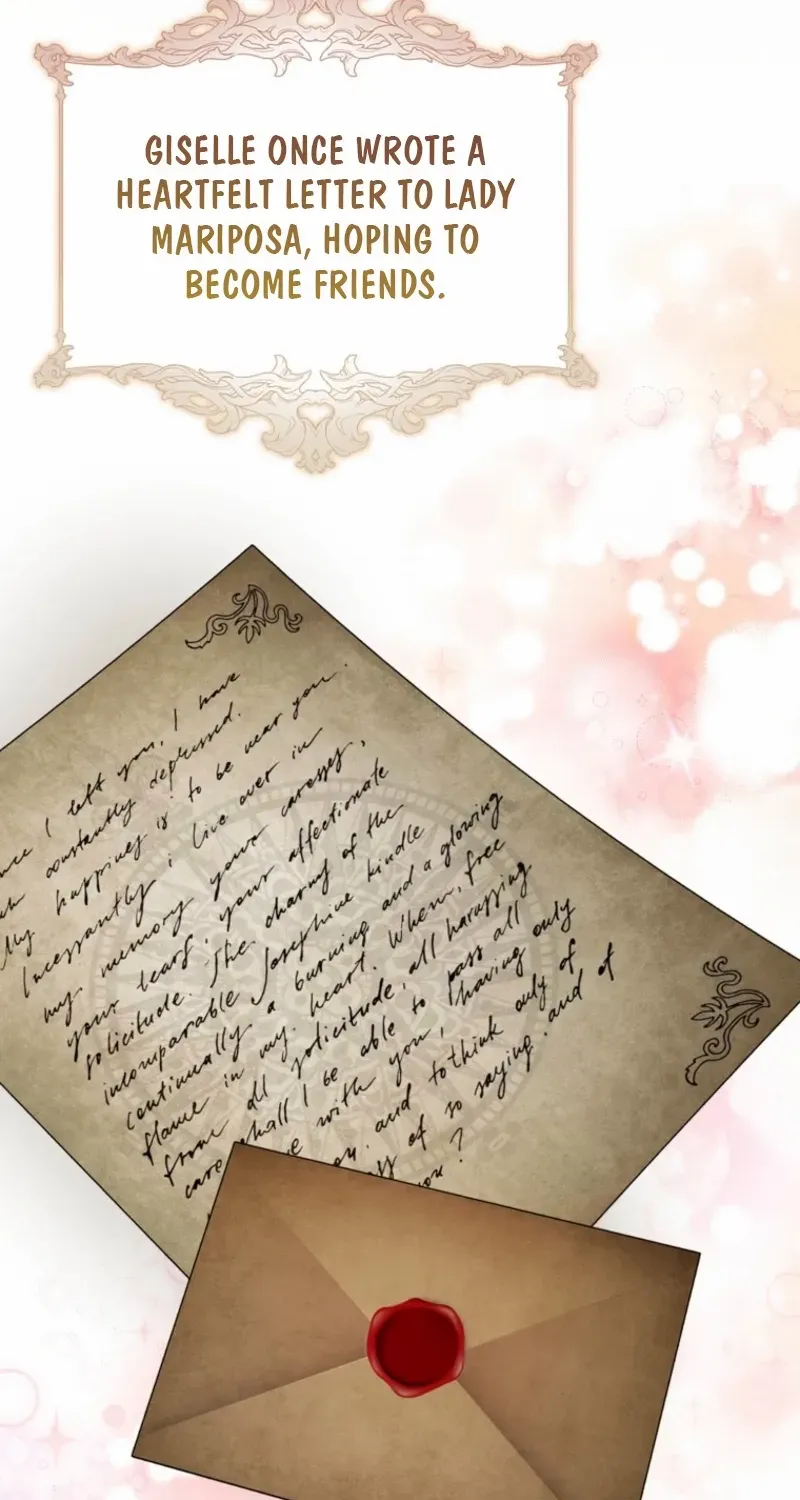 GISELLE ONCE WROTE A
HEARTFELT LETTER TO LADY
MARIPOSA, HOPING TO
BECOME FRIENDS.
I left you, I have
constantly depressed.
My happiness is to be near you.
Incessantly i live over in
my memory your caresses,
your tears, your affectionate
solicitude. The charms of the
incomparable Josephine kindle
continually a burning and a glowing
flame in my heart. When, free
from all solicitude, all harassing
care, shall I be able to pass all
with you, having only
and tothink only of
of so saying, and of
?